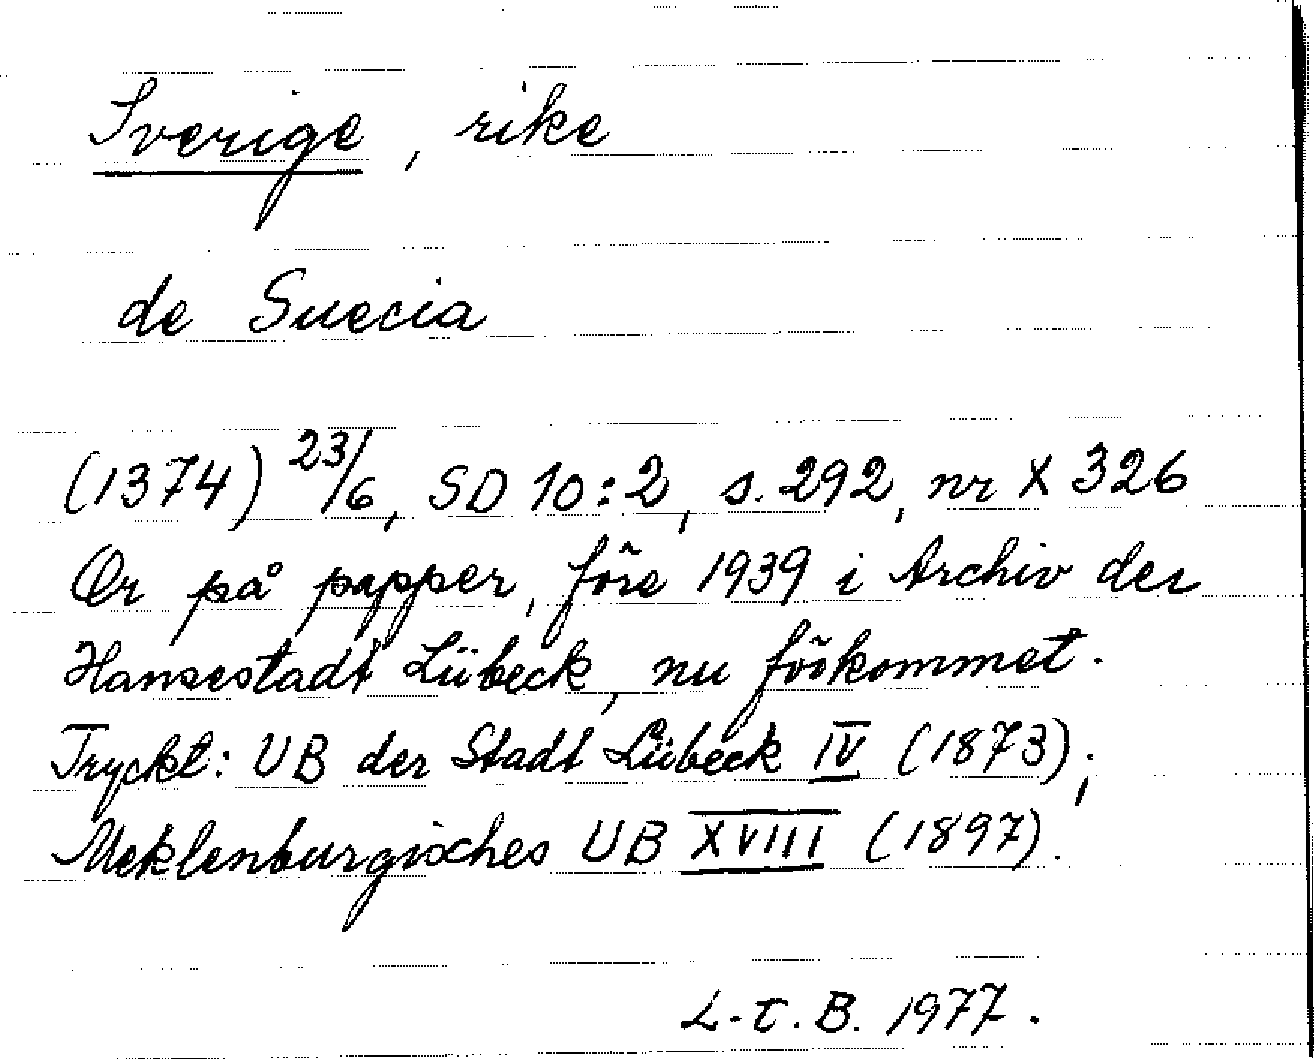 Sverige, rike
de Suecia
(1374) 23/6, SD 10:2, s. 292, nr X 326
Or på papper, före 1939 i Archiv der
Hansestadt Lübeck, nu förkommet.
Tryckt: UB der Stadt Lübeck IV (1873);
Meklenburgisches UB XVIII (1897).
L-t. B. 1977.